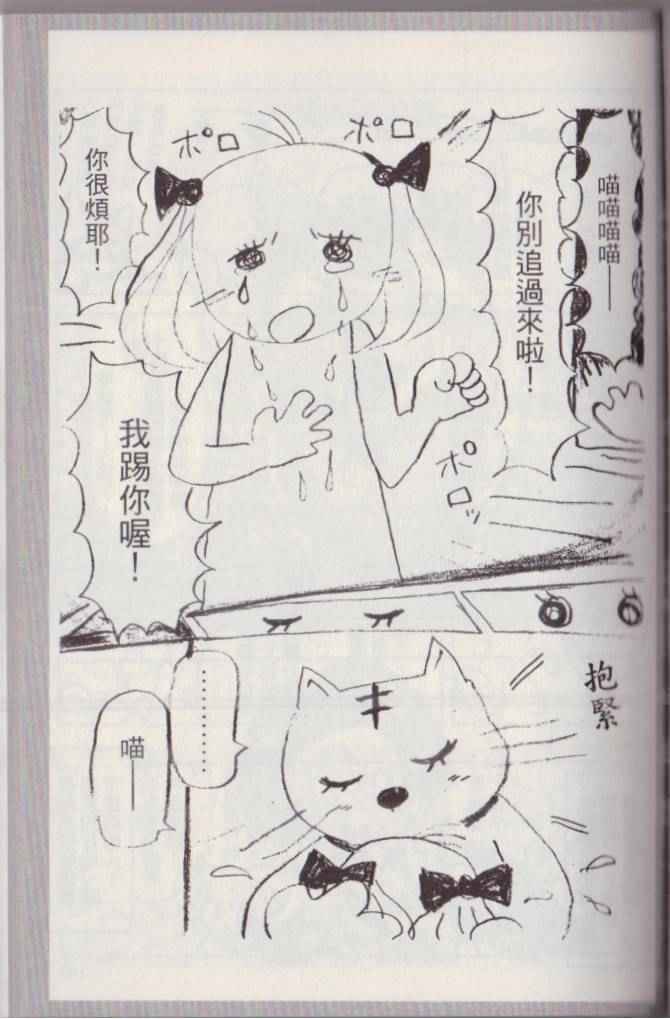 喵喵喵喵——
你別追過來啦！
ポロ
ポロ
你很煩耶！
ポロッ
我踢你喔！
抱緊
…………
喵——